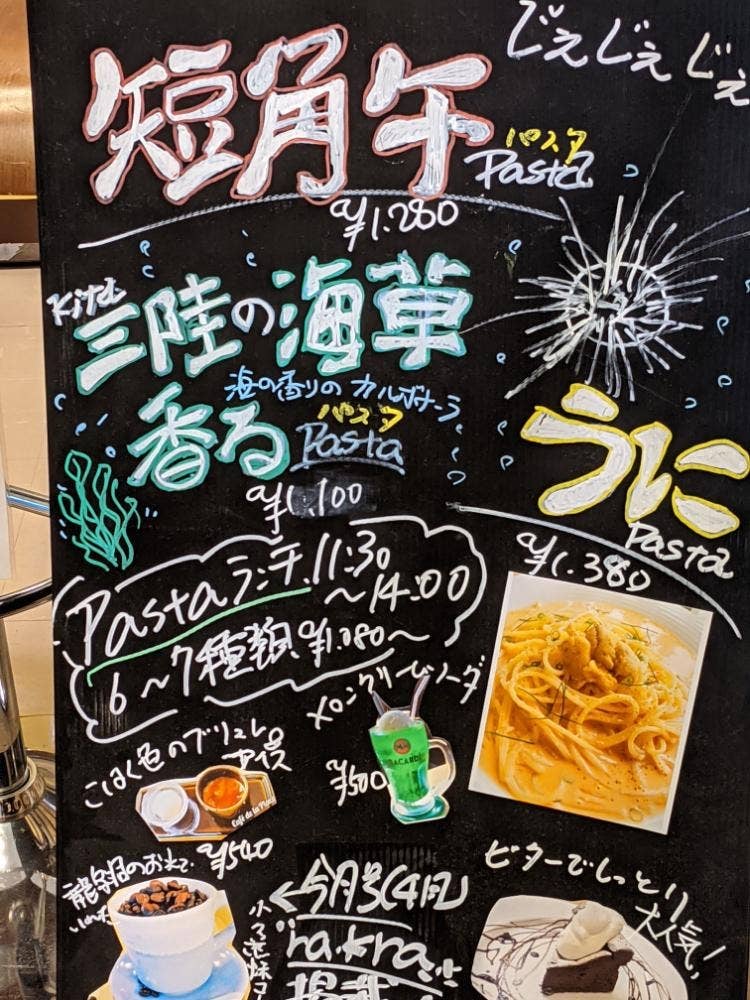 じぇじぇじぇ
短角牛
パスタ
Pasta
¥1.280
Kita
三陸の海草
香る
海の香りのカルボナーラ
パスタ
Pasta
¥1,100
うに
Pasta
¥1.380
Pastaランチ 11:30
〜14:00
6〜7種類 ¥1.080〜
メロンクリームソーダ
¥500
BACARDI
こはく色のブリュレ
アイス
¥540
龍泉洞のお水で
いれた
<今月号(4月)
ra・kra
掲載
ビターでしっとり
大人気!